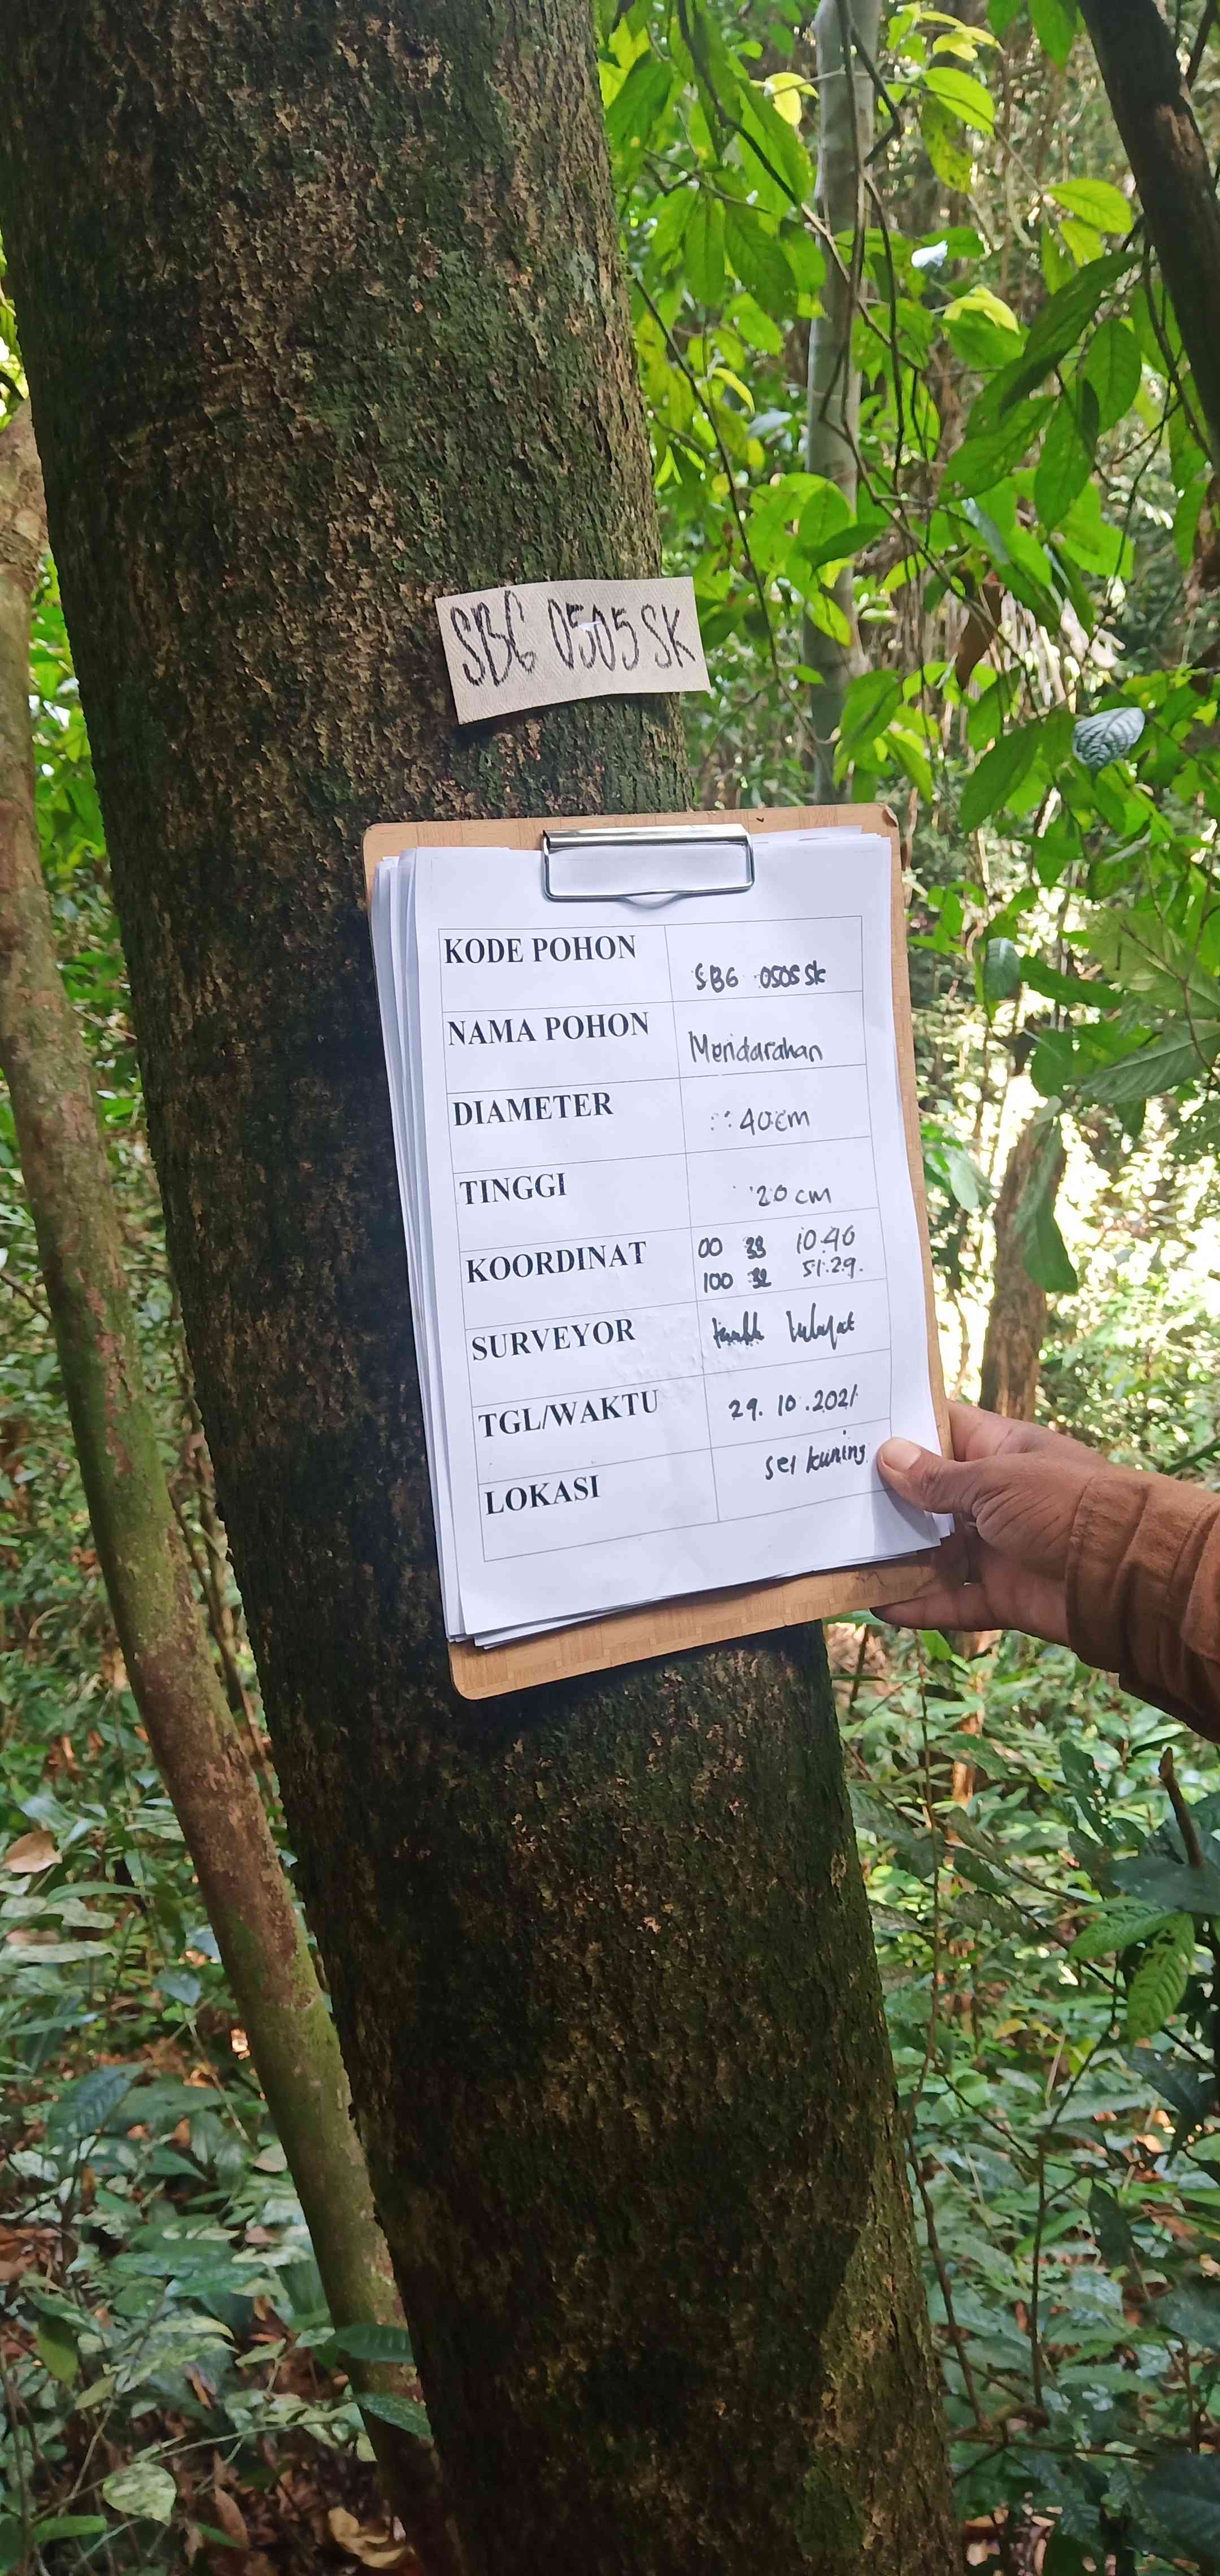 SBG 0505 SK
KODE POHON
SBG 0505 SK
NAMA POHON
Mendarahan
DIAMETER
40 cm
TINGGI
20 cm
KOORDINAT
00 33 10.46
100 32 51.29.
SURVEYOR
TGL/WAKTU
29.10.2021
LOKASI
sei kuning